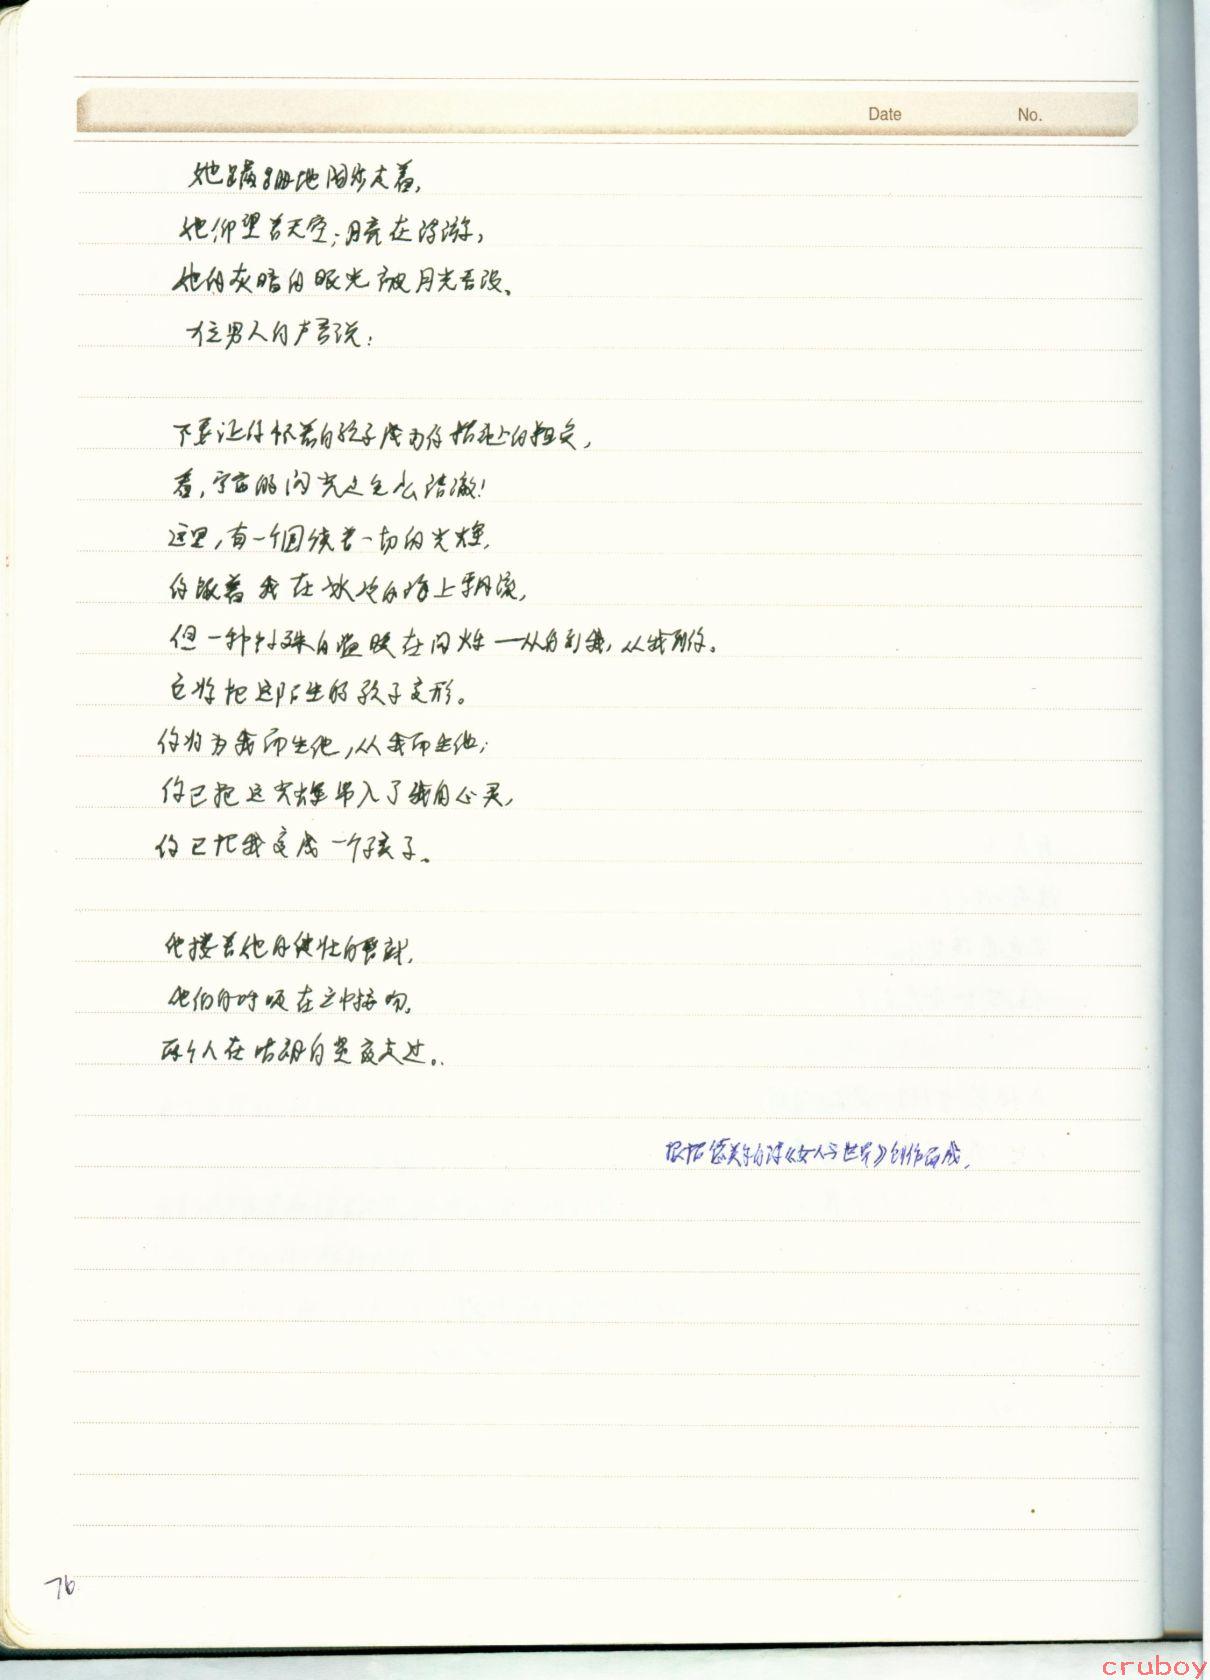 Date No.
她蹒跚地同步走着,
她仰望着天空;月亮在浮游,
她的灰暗的眼光被月光吞没、
一位男人的声音说:
不要让你怀着的孩子成为你 的担负,
看,宇宙的闪光是怎么洁澈!
这里,有一个围绕着一切的光辉,
你跟着我在冰冷的海上飘流,
但一种特殊的温暖在闪烁——从你到我,从我到你。
它将把这陌生的孩子变形。
你将为我而生他,从我而生他;
你已把这光辉带入了我的心灵,
你已把我变成一个孩子。
他搂着她的健壮的臀部,
他们的呼吸在空中接吻。
两个人在 朗的宽夜走过。.
根据德美尔的诗《女人与世界》创作而成.
76
cruboy